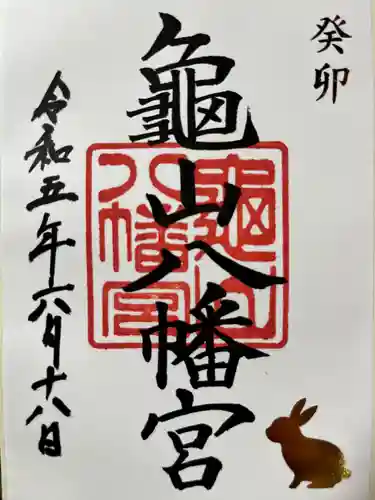 癸卯
龜山八幡宮
令和五年六月十八日
龜山八幡宮